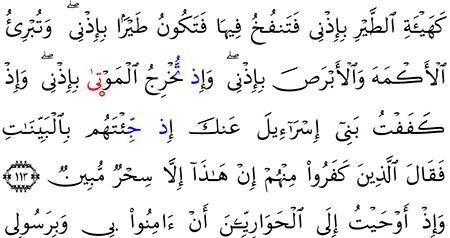 كَهَيْـَٔةِ الطَّيْرِ بِإِذْنِى فَتَنفُخُ فِيهَا فَتَكُونُ طَيْرًۢا بِإِذْنِى ۖ وَتُبْرِئُ
الْأَكْمَهَ وَالْأَبْرَصَ بِإِذْنِى ۖ وَإِذ تُّخْرِجُ الْمَوْتىٰ بِإِذْنِى ۖ وَإِذْ
كَفَفْتُ بَنِىٓ إِسْرَٰٓءِيلَ عَنكَ إِذ جِّئْتَهُم بِالْبَيِّنَٰتِ
فَقَالَ الَّذِينَ كَفَرُوا۟ مِنْهُمْ إِنْ هَٰذَآ إِلَّا سِحْرٌ مُّبِينٌ ﴿١١٣﴾
وَإِذْ أَوْحَيْتُ إِلَى الْحَوَارِيِّـۧنَ أَنْ ءَامِنُوا۟ بِى وَبِرَسُولِى